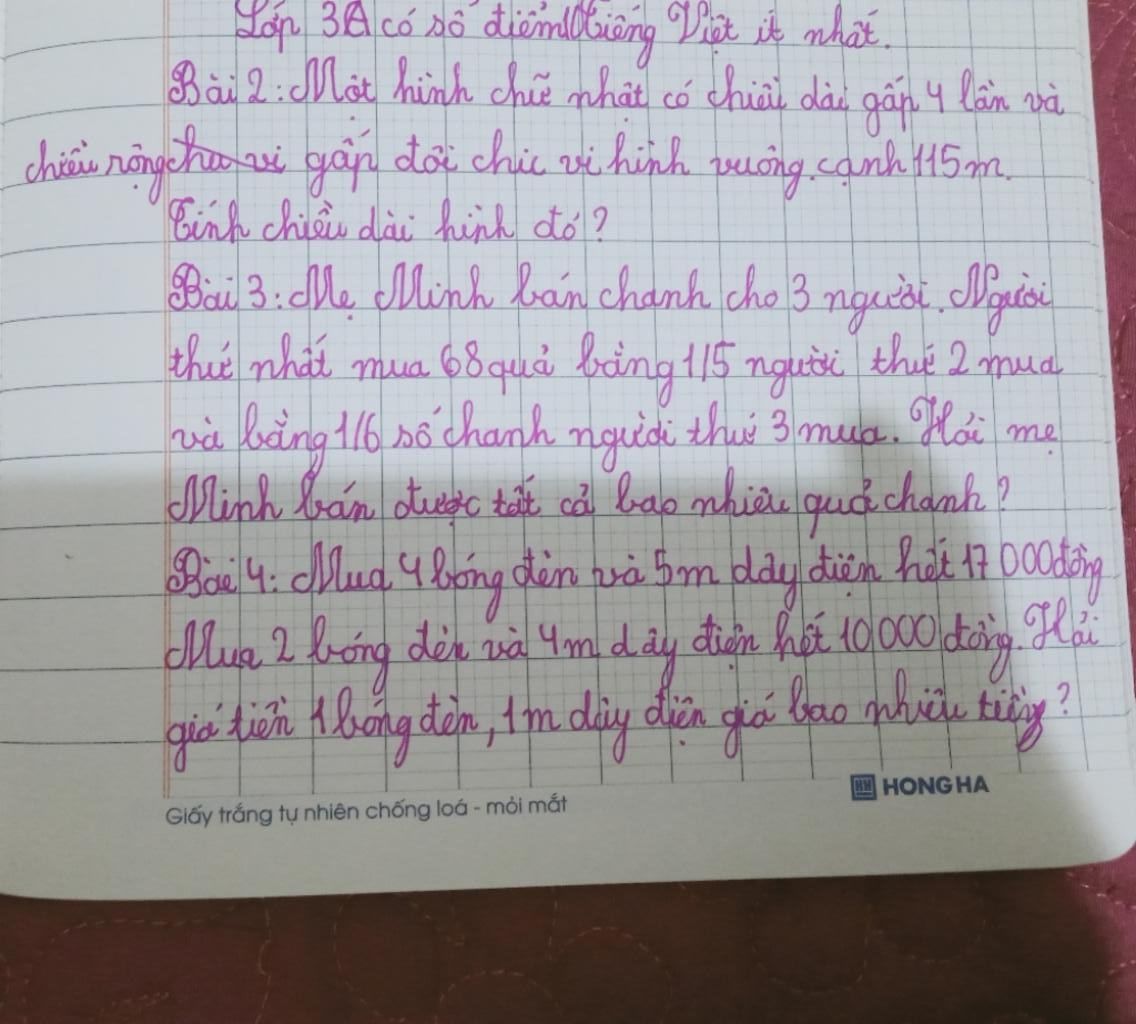 Lớp 3A có số điểm 10 Tiếng Việt ít nhất.
Bài 2: Một hình chữ nhật có chiều dài gấp 4 lần và
chiều rộng chu vi gấp đôi chu vi hình vuông cạnh 115m.
Tính chiều dài hình đó?
Bài 3: Mẹ Minh bán chanh cho 3 người. Người
thứ nhất mua 68 quả bằng 1/5 người thứ 2 mua
và bằng 1/6 số chanh người thứ 3 mua. Hỏi mẹ
Minh bán được tất cả bao nhiêu quả chanh?
Bài 4: Mua 4 bóng đèn và 5m dây điện hết 17 000 đồng
Mua 2 bóng đèn và 4m dây điện hết 10 000 đồng. Hỏi
giá tiền 1 bóng đèn, 1m dây điện giá bao nhiêu tiền?
HONG HA
Giấy trắng tự nhiên chống loá - mỏi mắt